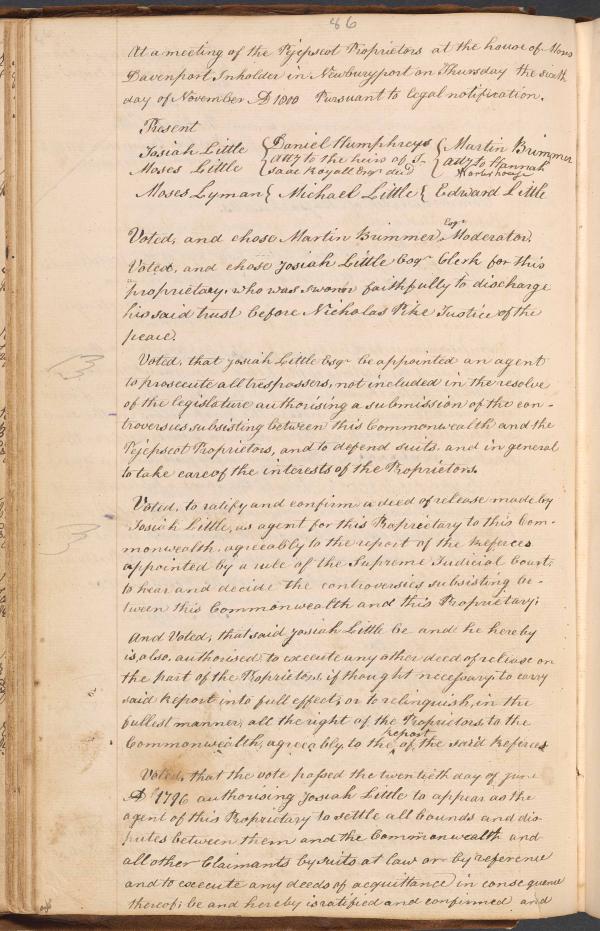 86
At a meeting of the Pejepscot Proprietors at the house of Moses
Davenport Inholder in Newburyport on Thursday the sixth
day of November AD 1800 Pursuant to legal notification.
Present
Josiah Little { Daniel Humphreys { Martin Brimmer
Moses Little { atty to the heirs of I- { atty to Hannah
saac Royall Esqr decd
Moses Lyman { Michael Little { Edward Little
Voted, and chose Martin Brimmer Esqr Moderator.
Voted, and chose Josiah Little Esqr Clerk for this
proprietary, who was sworn faithfully to discharge
his said trust before Nicholas Pike Justice of the
peace.
Voted, that Josiah Little Esqr be appointed an agent
to prosecute all trespassers, not included in the resolve
of the legislature authorising a submission of the con-
troversies subsisting between this Commonwealth and the
Pejepscot Proprietors, and to defend suits and in general
to take care of the interests of the Proprietors.
Voted, to ratify and confirm a deed of release made by
Josiah Little, as agent for this Proprietary to this Com-
monwealth, agreeably to the report of the Referees
appointed by a rule of the Supreme Judicial Court,
to hear and decide the controversies subsisting be-
tween this Commonwealth and this Proprietary;
And Voted, that said Josiah Little be and he hereby
is, also, authorised to execute any other deed of release on
the part of the Proprietors, if thought necessary, to carry
said Report into full effect, or to relinquish, in the
fullest manner, all the right of the Proprietors, to the
Commonwealth, agreeably, to the report of the said Referees
Voted, that the vote passed the twentieth day of June
AD 1796 authorising Josiah Little to appear as the
agent of this Proprietary to settle all bounds and dis-
putes between them and the Commonwealth and
all other Claimants by suits at law or by reference
and to execute any deeds of acquittance in consequence
thereof; be and hereby is ratified and confirmed and